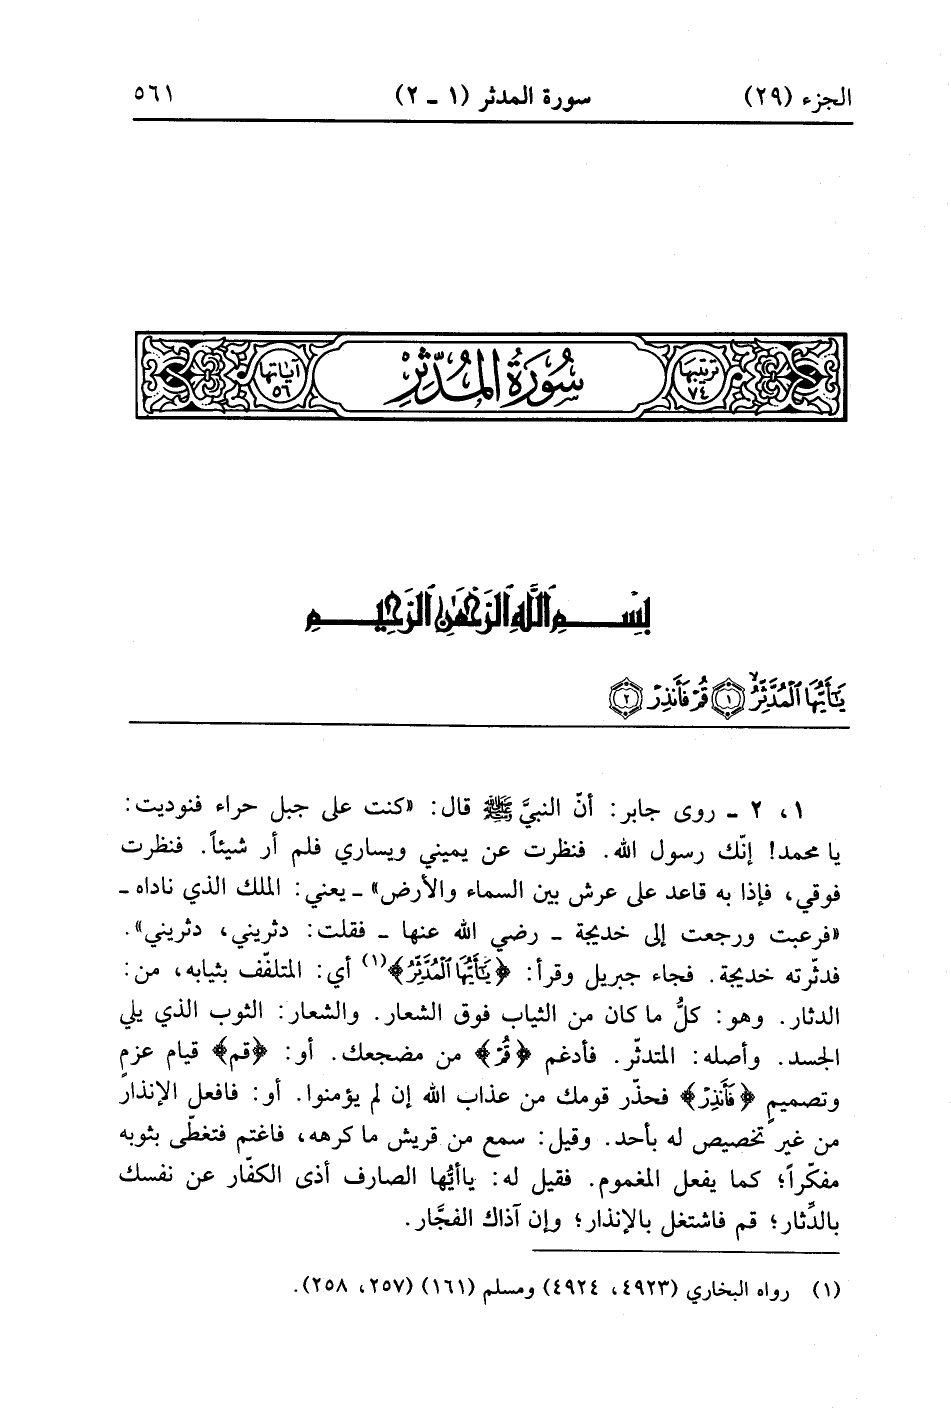 الجزء (٢٩) سورة المدثر (١ ـ ٢) ٥٦١
ترتيبها ٧٤ سُورَةُ المُدَّثِّرْ آياتها ٥٦
بِسْمِ ٱللَّهِ ٱلرَّحْمَٰنِ ٱلرَّحِيمِ
يَٰٓأَيُّهَا ٱلْمُدَّثِّرُ ۝١ قُمْ فَأَنذِرْ ۝٢
١، ٢ ـ روى جابر: أنّ النبيَّ ﷺ قال: «كنت على جبل حراء فنوديت:
يا محمد! إنّك رسول الله. فنظرت عن يميني ويساري فلم أر شيئاً. فنظرت
فوقي، فإذا به قاعد على عرش بين السماء والأرض» ـ يعني: الملك الذي ناداه ـ
«فرعبت ورجعت إلى خديجة ـ رضي الله عنها ـ فقلت: دثريني، دثريني».
فدثّرته خديجة. فجاء جبريل وقرأ: ﴿يَٰٓأَيُّهَا ٱلْمُدَّثِّرُ﴾(١) أي: المتلفّف بثيابه، من:
الدثار. وهو: كلُّ ما كان من الثياب فوق الشعار. والشعار: الثوب الذي يلي
الجسد. وأصله: المتدثّر. فأدغم ﴿قُمْ﴾ من مضجعك. أو: ﴿قم﴾ قيام عزمٍ
وتصميمٍ ﴿فَأَنذِرْ﴾ فحذّر قومك من عذاب الله إن لم يؤمنوا. أو: فافعل الإنذار
من غير تخصيص له بأحد. وقيل: سمع من قريش ما كرهه، فاغتم فتغطّى بثوبه
مفكّراً؛ كما يفعل المغموم. فقيل له: ياأيُّها الصارف أذى الكفّار عن نفسك
بالدِّثار؛ قم فاشتغل بالإنذار؛ وإن آذاك الفجَّار.
(١) رواه البخاري (٤٩٢٣، ٤٩٢٤) ومسلم (١٦١) (٢٥٧، ٢٥٨).